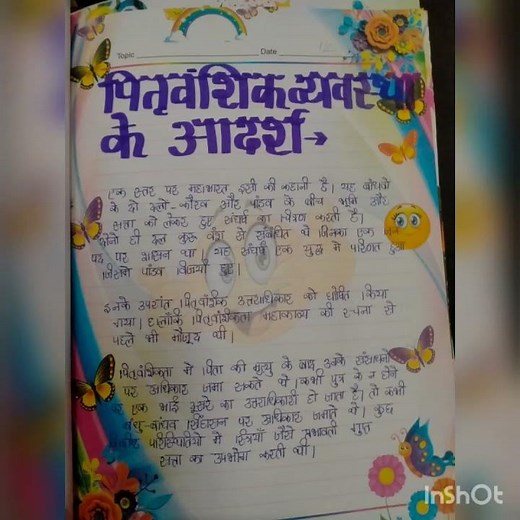 Topic Date
पितृवंशिक व्यवस्था
के आदर्श→
एक स्तर पर महाभारत इसी की कहानी है। यह बांधवो
के दो दलो - कौरव और पांडव के बीच भूमि और
सत्ता को लेकर हुए संघर्ष का चित्रण करती है।
दोनो ही दल कुरू वंश से संबंधित थे जिनका एक
पद पर शासन था। यह संघर्ष एक युद्ध मे परिणत हुआ
जिसमे पांडव विजयी हुए।
इनके उपरांत पितृवंशिक उत्तराधिकार को घोषित किया
गया। हालाँकि पितृवंशिकता महाकाव्य की रचना से
पहले भी मौजूद थी।
पितृवंशिकता मे पिता की मृत्यु के बाद उनके संसाधनो
पर अधिकार जमा सकते थे। कभी पुत्र के न होने
पर एक भाई दूसरे का उत्तराधिकारी हो जाता है। तो कभी
बंधु-बांधव सिंहासन पर अधिकार जमाते थे। कुछ
परिस्थितियो मे स्त्रियाँ जैसे प्रभावती गुप्त
सत्ता का उपभोग करती थी।
InShOt